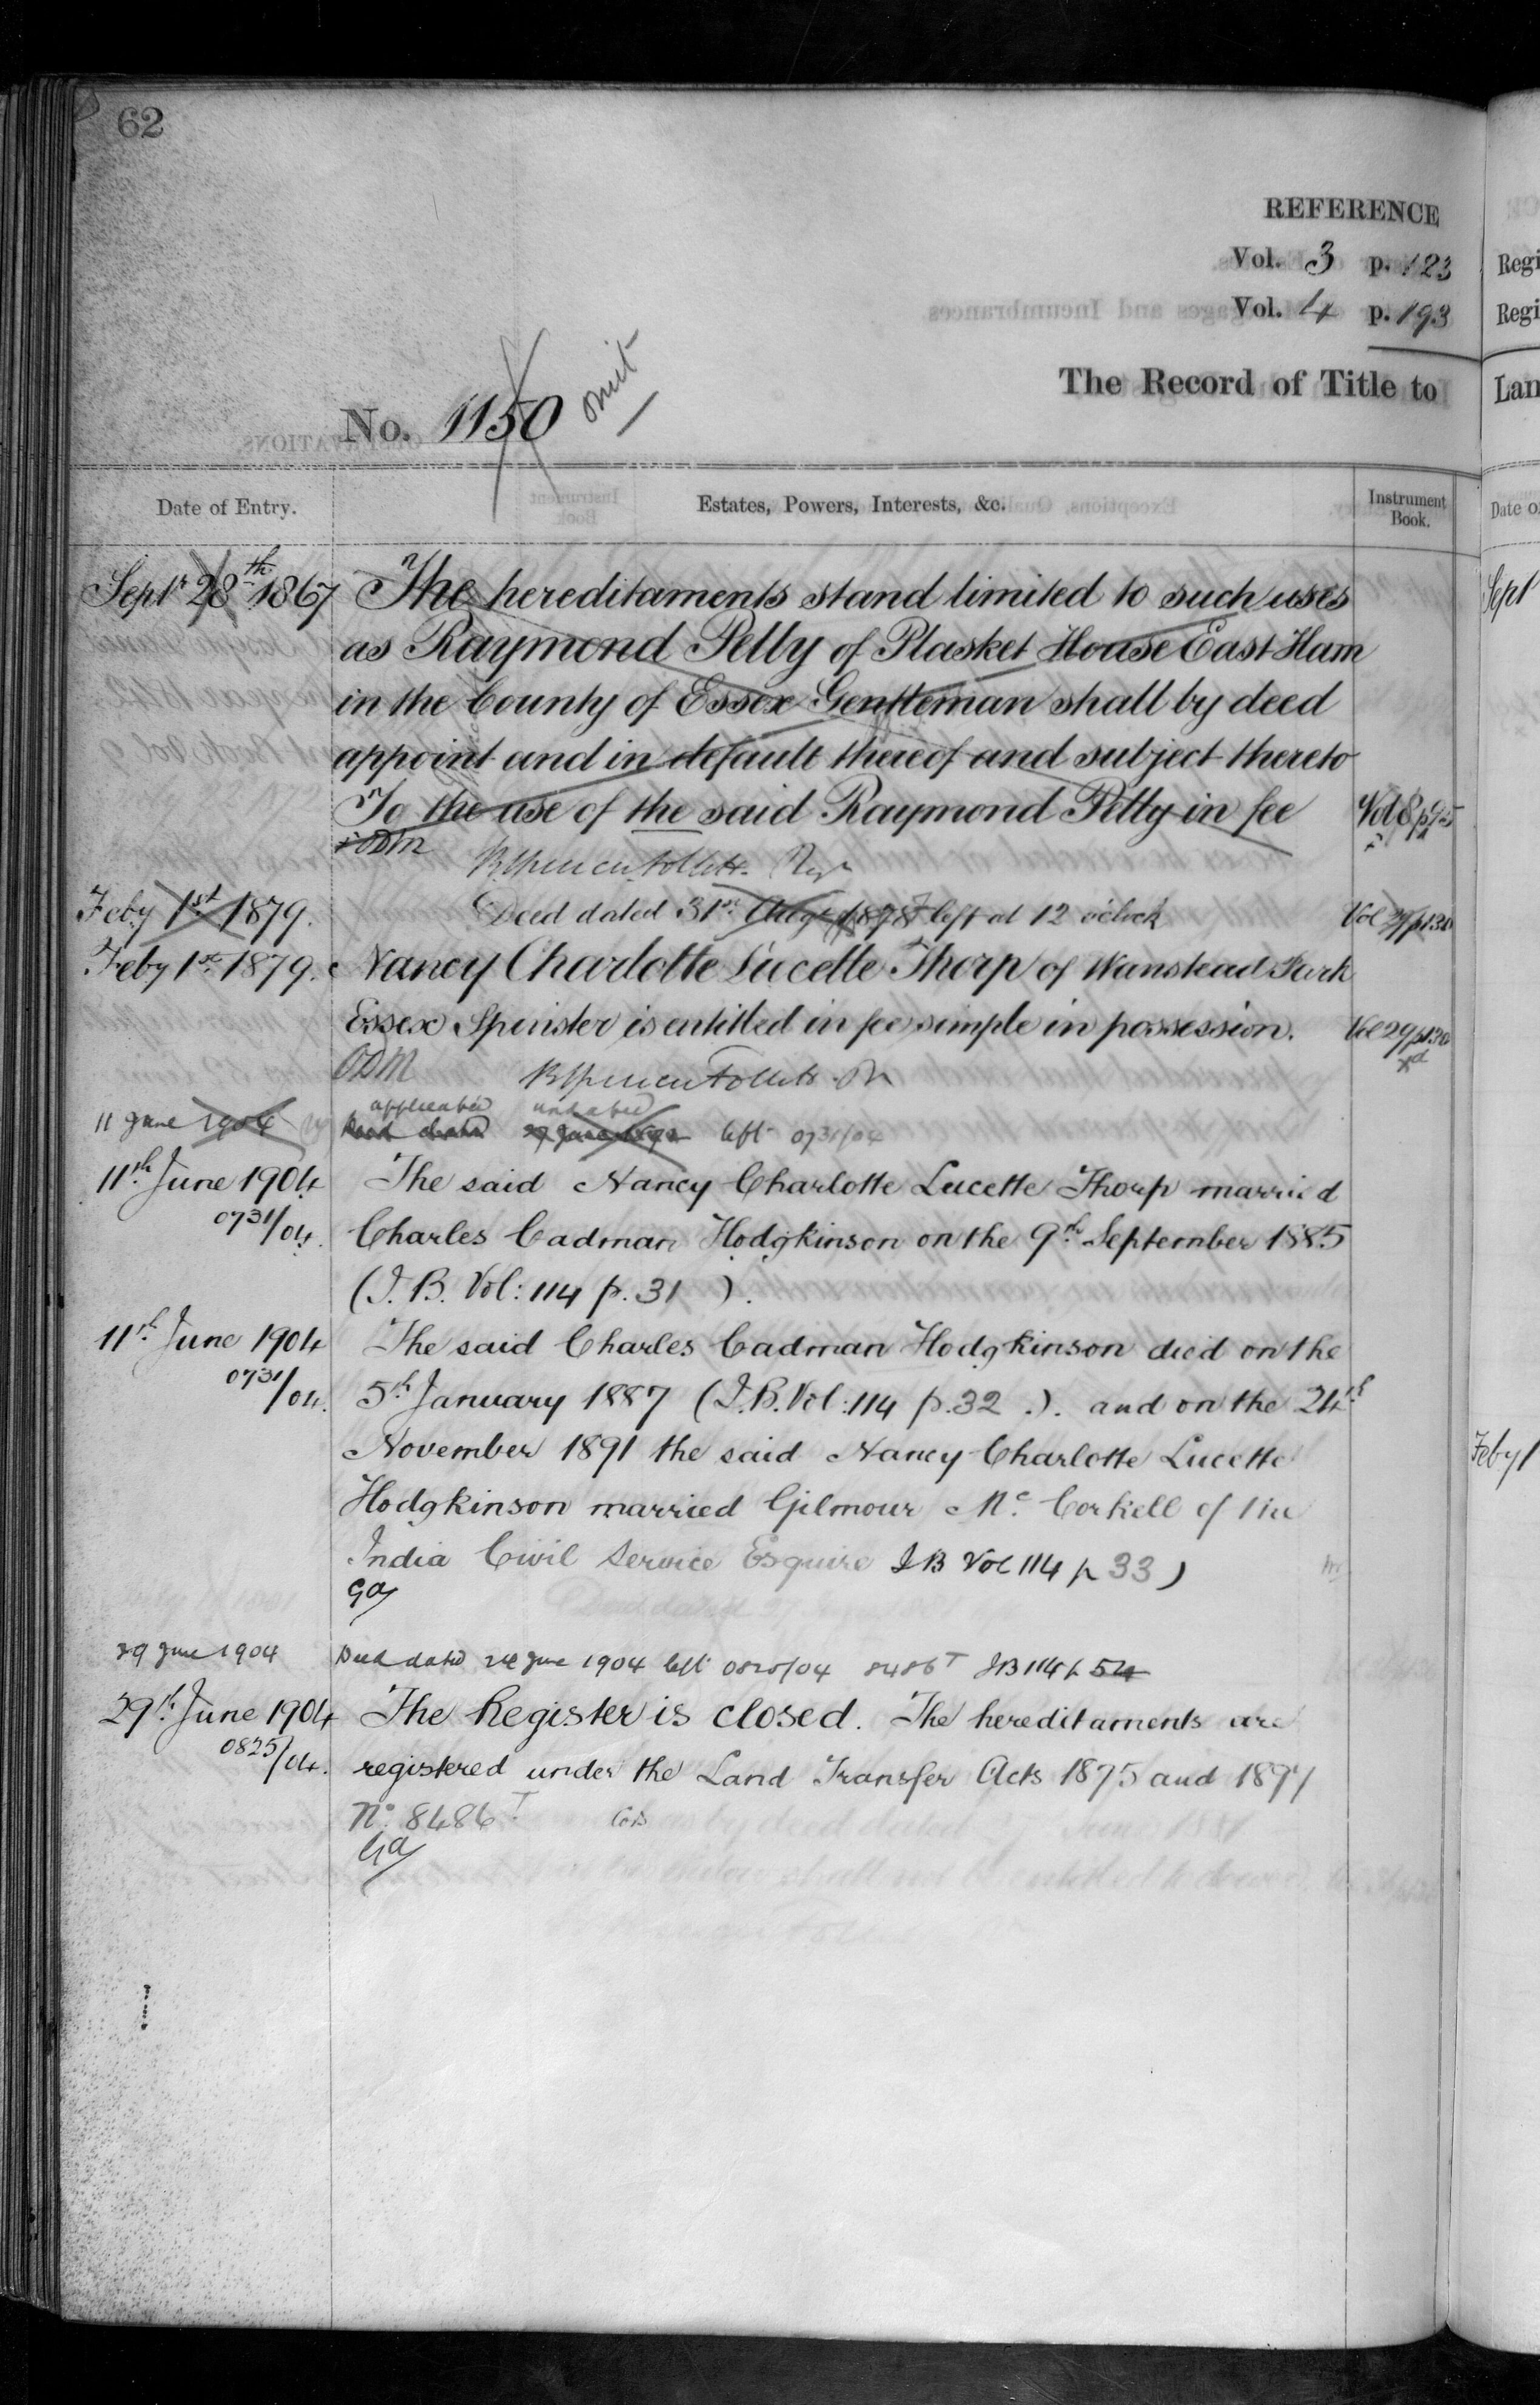 62
REFERENCE
Vol. 3 p. 123
Vol. 4 p. 193
No. 1150 omit
The Record of Title to
Date of Entry. Estates, Powers, Interests, &c. Instrument Book.
Septr 28th 1867 The hereditaments stand limited to such uses
as Raymond Pelly of Plasket House East Ham
in the County of Essex Gentleman shall by deed
appoint and in default thereof and subject thereto
To the use of the said Raymond Pelly in fee Vol 8 p 95
ODM
Feby 1st 1879. Deed dated 31st Augt 1878 left at 12 o'clock Vol 29 p 130
Feby 1st 1879. Nancy Charlotte Lucette Thorp of Wanstead Park
Essex Spinster is entitled in fee simple in possession. Vol 29 p 130
ODM
application undated
11 June 1904 Deed dated left 0731/04
11th June 1904 The said Nancy Charlotte Lucette Thorp married
0731/04. Charles Cadman Hodgkinson on the 9th September 1885
(I.B. Vol: 114 p. 31 ).
11th June 1904 The said Charles Cadman Hodgkinson died on the
0731/04. 5th January 1887 (I.B. Vol: 114 p. 32 .). and on the 24th
November 1891 the said Nancy Charlotte Lucette
Hodgkinson married Gilmour Mc Corkell of the
India Civil Service Esquire I B Vol 114 p 33)
Ga
29 June 1904 Deed dated 24 June 1904 left 0825/04 8486T IB 114 p 54
29th June 1904 The Register is closed. The hereditaments are
0825/04. registered under the Land Transfer Acts 1875 and 1897
No. 8486T
Ga
Regi
Regi
Lan
Date o
Sept
Feby 1